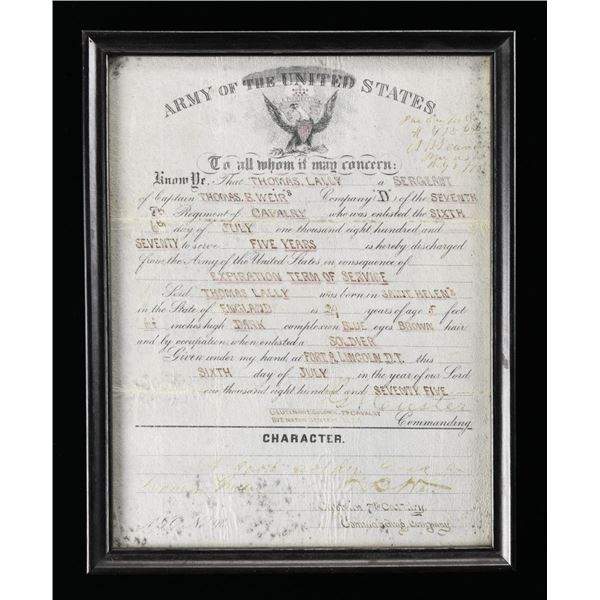 ARMY OF THE UNITED STATES.
To all whom it may concern:
Know Ye, That THOMAS. LALLY a SERGEANT
of Captain THOMAS. B. WEIR's Company 'D' of the SEVENTH
7th Regiment of CAVALRY who was enlisted the SIXTH
6th day of JULY one thousand eight hundred and
SEVENTY to serve FIVE YEARS is hereby discharged
from the Army of the United States in consequence of
EXPIRATION TERM OF SERVICE
Said THOMAS LALLY was born in SAINT HELEN's
in the State of ENGLAND is years of age 5 feet
inches high DARK complexion BLUE eyes BROWN hair
and by occupation, when enlisted a SOLDIER
Given under my hand, at FORT A. LINCOLN D.T. this
SIXTH day of JULY in the year of our Lord
one thousand eight hundred and SEVENTY FIVE
Custer
LIEUTENANT COLONEL 7th CAVALRY
Commanding.
CHARACTER.
Captain 7th Cavalry
Company